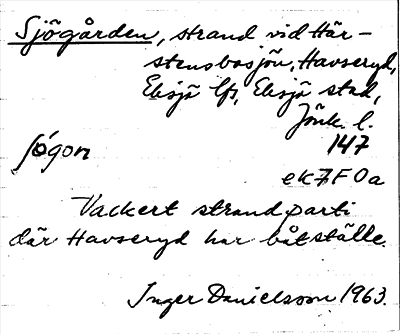 Sjögården, strand vid Här-
stensbosjön, Havseryd,
Eksjö lfs, Eksjö stad,
Jönk. l.
147
ek7F0a
Vackert strandparti
där Havseryd har båtställe.
Inger Danielsson 1963.